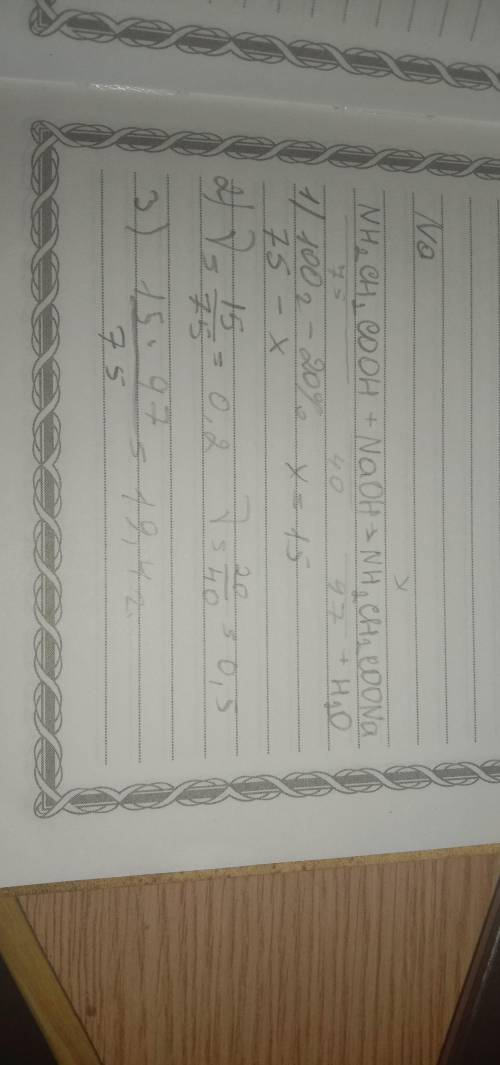 No
NH₂CH₂COOH + NaOH = NH₂CH₂COONa + H₂O
75 40 97 x
1) 100г - 20% x = 15
75 - x
2) ν = 15/75 = 0,2 ν = 20/40 = 0,5
3) 15·97/75 = 19,4г